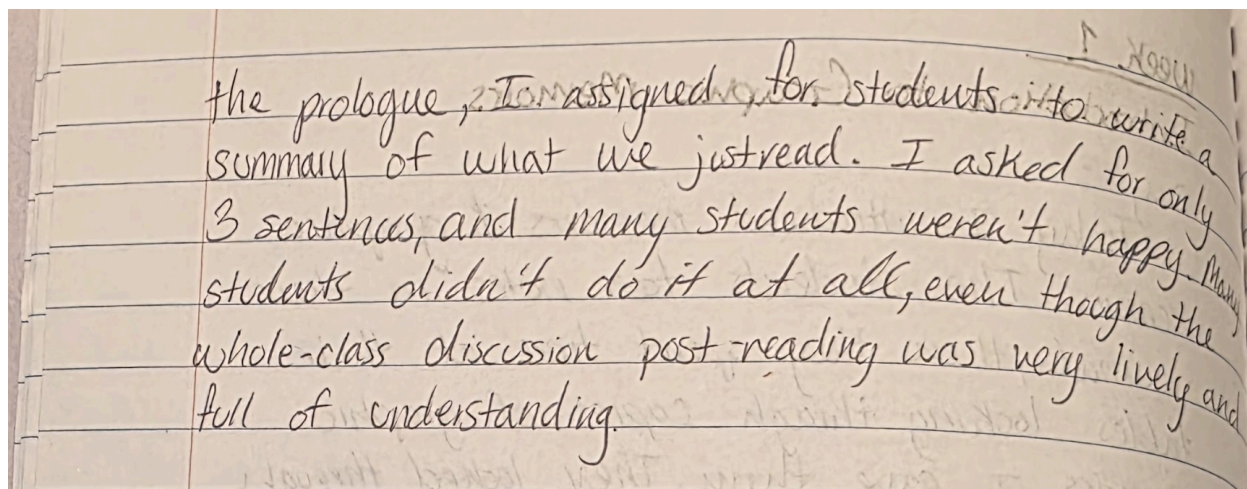 Week 1
the prologue, I assigned for students to write a
summary of what we just read. I asked for only
3 sentences, and many students weren't happy. Many
students didn't do it at all, even though the
whole-class discussion post-reading was very lively and
full of understanding.